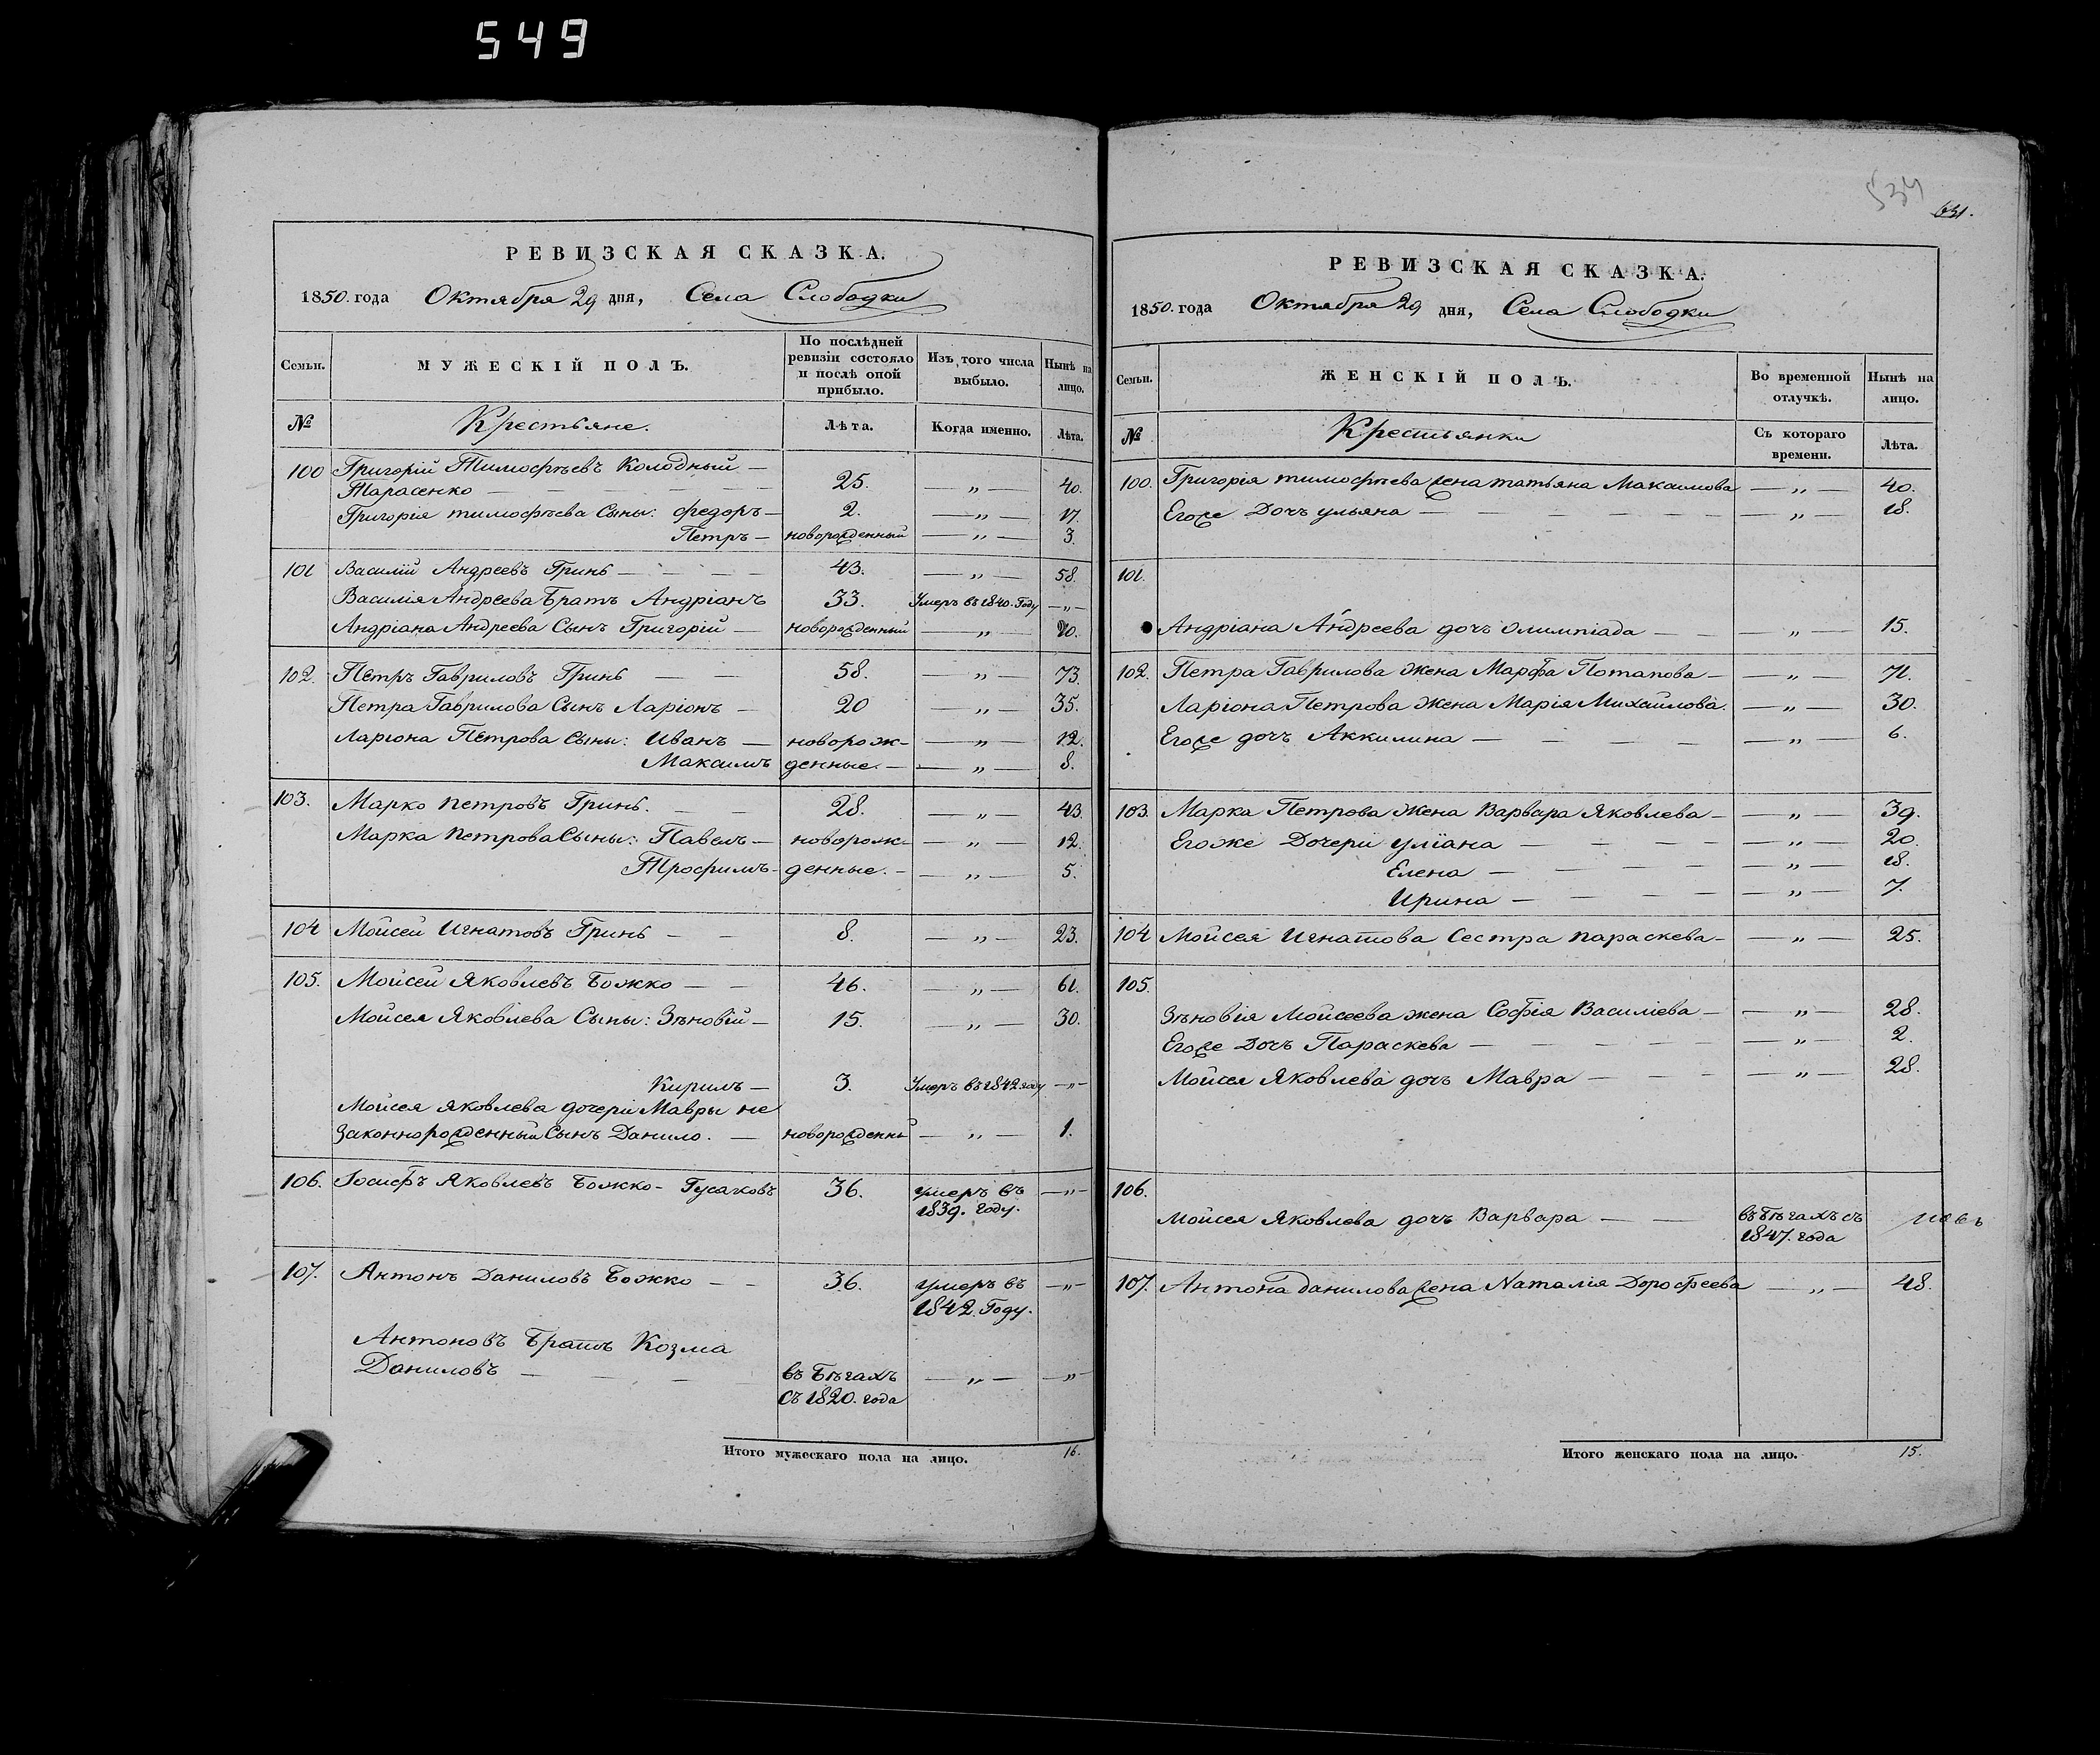 549
РЕВИЗСКАЯ СКАЗКА.
1850. года Октября 29 дня, Села Слободки
Семьи. МУЖЕСКІЙ ПОЛЪ. По послѣдней ревизіи состояло и послѣ оной прибыло. Изъ того числа выбыло. Нынѣ на лицо.
№ Крестьяне. Лѣта. Когда именно. Лѣта.
100 Григорій Тимофѣевъ Колодный —
Тарасенко — 25. — „ — 40.
Григорія тимофѣева Сыны: федоръ — 2. — „ — 17.
Петръ — новорожденный — „ — 3.
101 Василій Андреевъ Гринь — 43. — „ — 58.
Василія Андреева Братъ Андріанъ 33. Умеръ въ 1840. Году — „ —
Андріана Андреева Сынъ Григорій — новорожденный — „ — 20.
102. Петръ Гавриловъ Гринь — 58. — „ — 73.
Петра Гаврилова Сынъ Ларіонъ — 20 — „ — 35.
Ларіона Петрова Сыны: Иванъ — новорож- — „ — 12.
Максимъ денные. — „ — 8.
103. Марко петровъ Гринь. — 28. — „ — 43.
Марка петрова Сыны: Павелъ — новорож- — „ — 12.
Трофимъ — денные. — „ — 5.
104 Мойсей Игнатовъ Гринь — 8. — „ — 23.
105. Мойсей Яковлевъ Божко — 46. — „ — 61.
Мойсея Яковлева Сыны: Зѣновій — 15. — „ — 30.
Кирилъ — 3. Умеръ въ 1842 году — „ —
Мойсея яковлева дочери Мавры не
законнорожденный Сынъ Данило. — новорожденны — „ — 1.
106. Іосифъ Яковлевъ Божко - Гусаковъ 36. умеръ въ — „ —
1839. году.
107. Антонъ Даниловъ Божко — 36. умеръ въ — „ —
1842. Году.
Антоновъ Братъ Козма
Даниловъ — въ Бѣгахъ — „ — — „
съ 1820. года
Итого мужескаго пола на лицо. 16.
534
631.
РЕВИЗСКАЯ СКАЗКА.
1850. года Октября 29 дня, Села Слободки
Семьи. ЖЕНСКІЙ ПОЛЪ. Во временной отлучкѣ. Нынѣ на лицо.
№ Крестьянки Съ котораго времени. Лѣта.
100. Григорія тимофѣева жена татьяна Максимова — „ — 40.
Егоже Дочъ ульяна — — „ — 18.
101.
Андріана Андреева дочъ Олимпіада — — „ — 15.
102. Петра Гаврилова жена Марфа Потапова — — „ — 71.
Ларіона Петрова жена Марія Михайлова. — „ — 30.
Егоже дочъ Аккилина — — „ — 6.
103. Марка Петрова жена Варвара Яковлева — — „ — 39.
Егоже Дочери уліана — — „ — 20.
Елена — — „ — 18.
Ирина — — „ — 7.
104 Мойсея Игнатова Сестра параскева — — „ — 25.
105.
Зѣновія Мойсеева жена Софія Василіева — — „ — 28.
Егоже Дочъ Параскева — — „ — 2.
Мойсея Яковлева дочъ Мавра — — „ — 28.
106.
Мойсея Яковлева дочъ Варвара — въ Бѣгахъ съ
1847. года
107. Антона данилова жена Наталія Дорофеева — „ — 48.
Итого женскаго пола на лицо. 15.